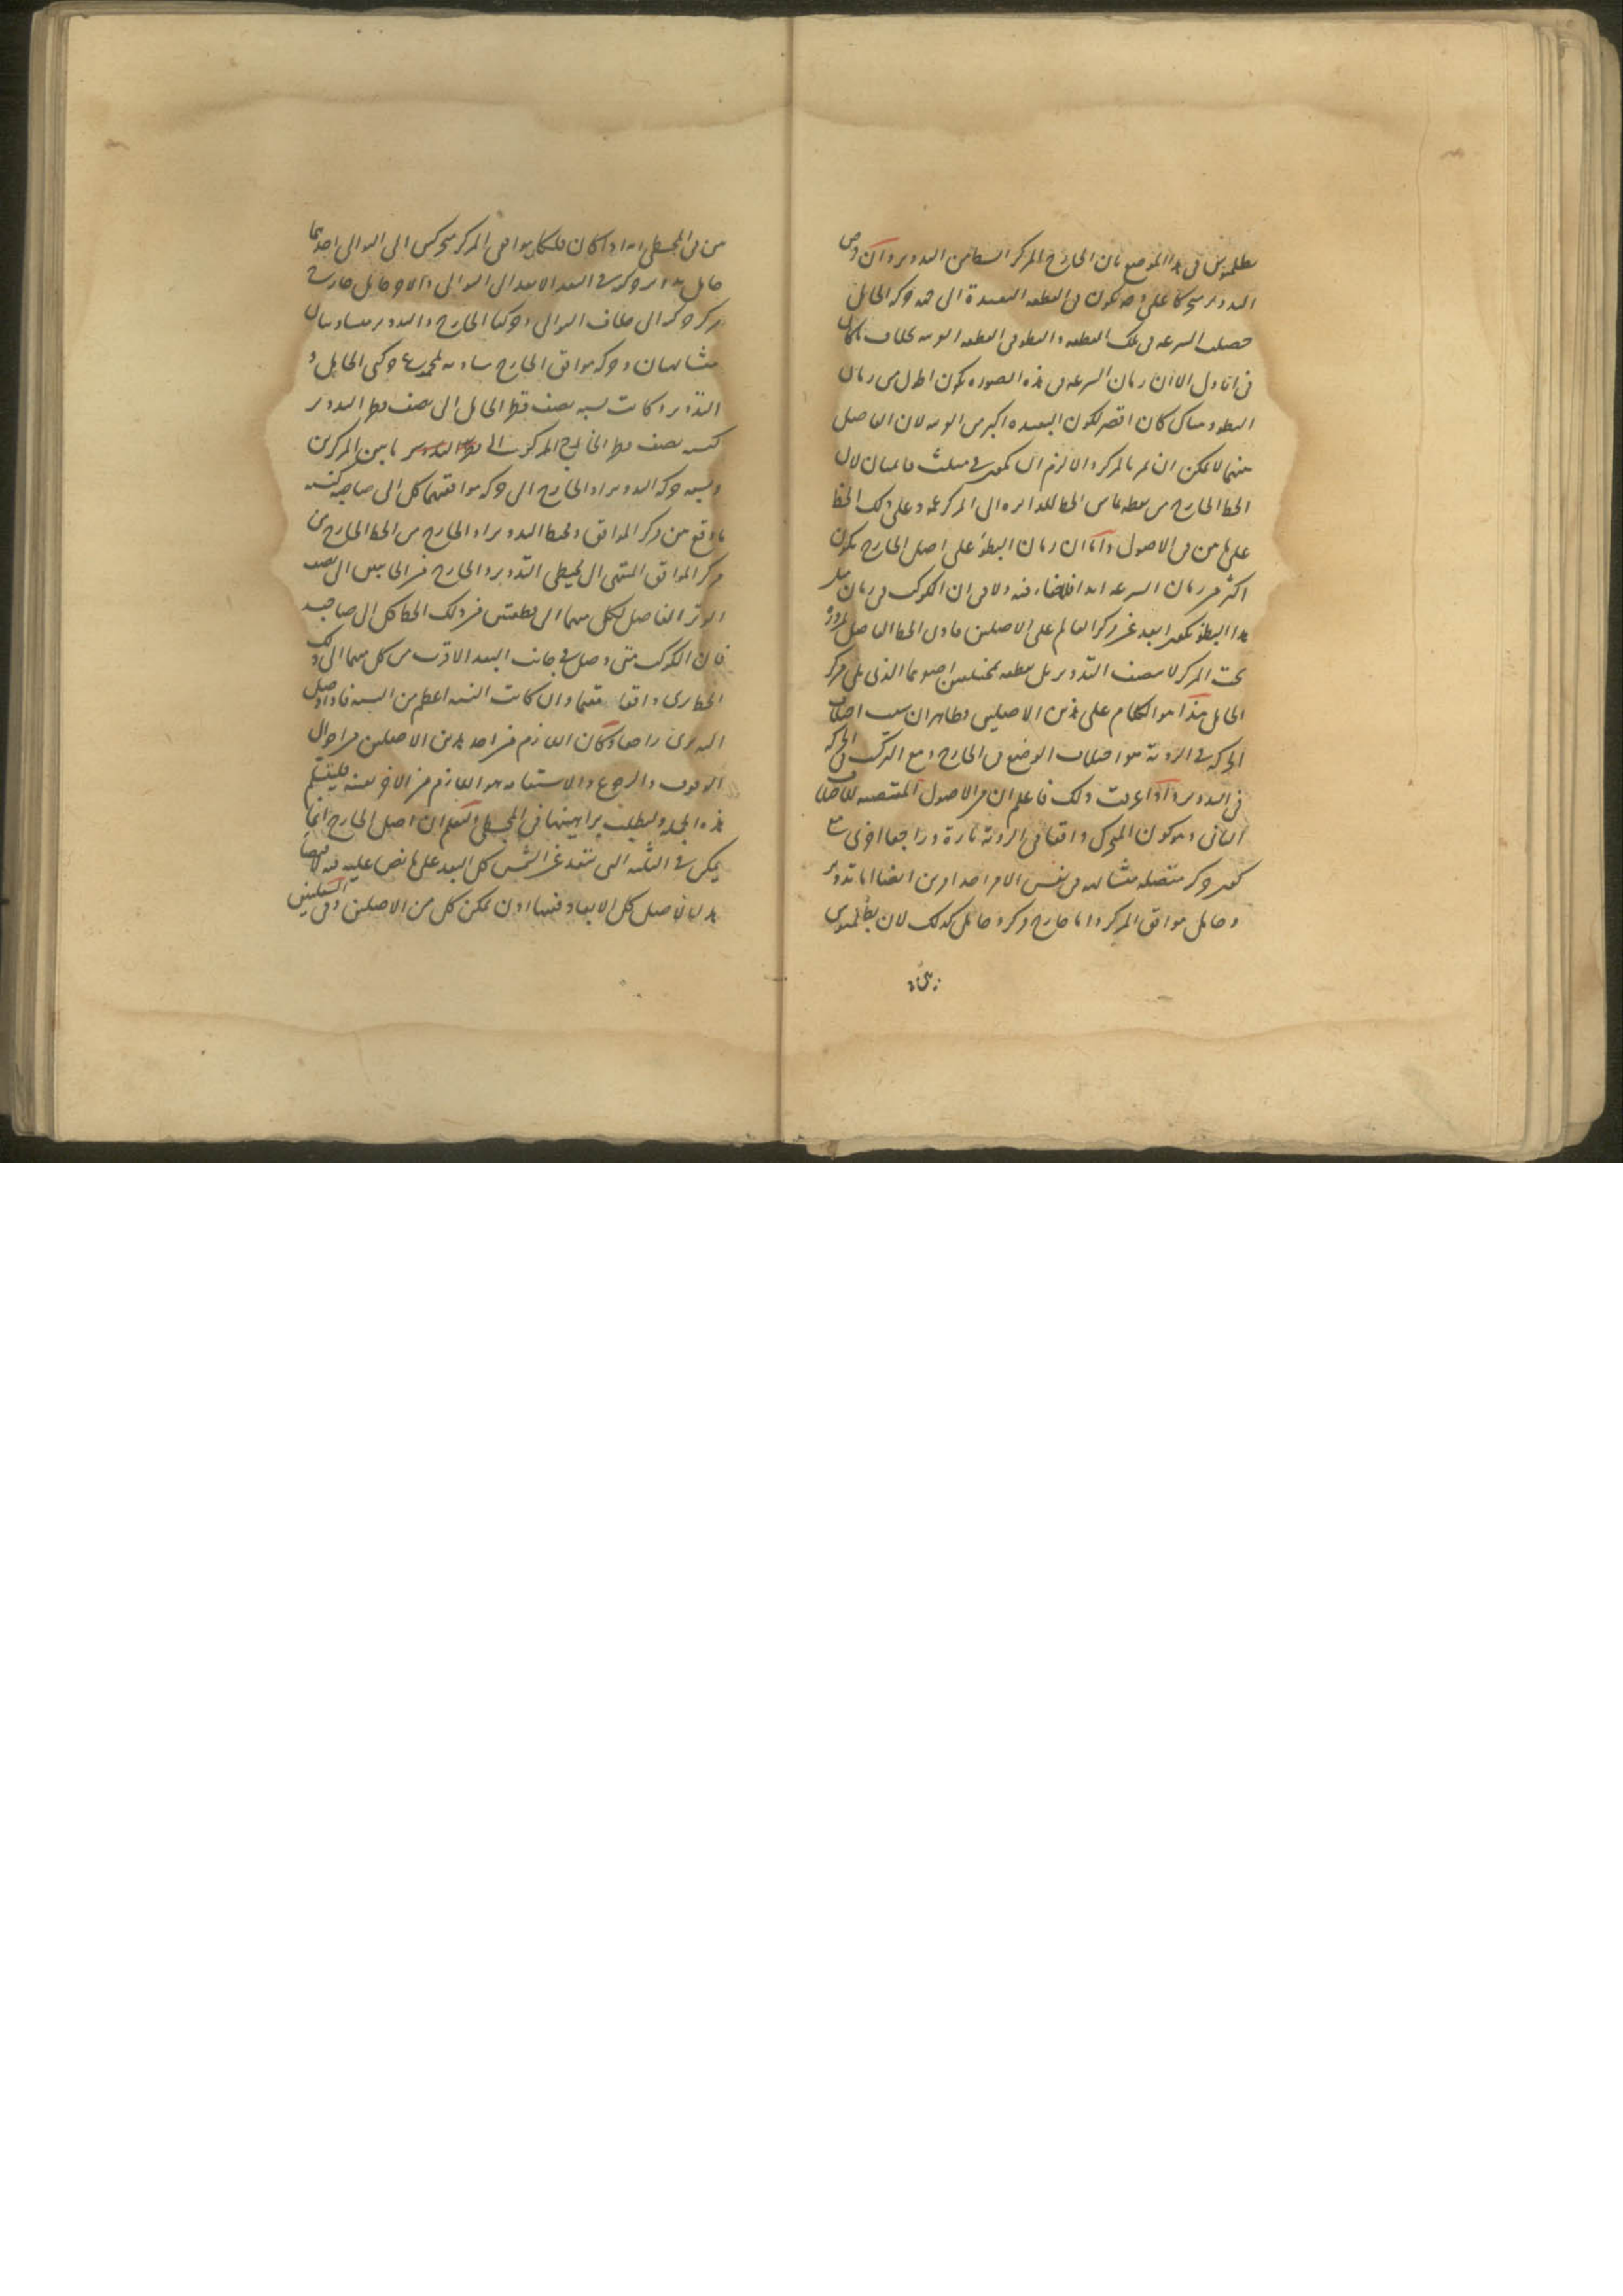 بطلميوس في هذا الموضع بان الخارج المركز ابسط من التدوير وان فرض
التدوير متحركا على وجه تكون في القطعة البعيدة الى جهة حركة الحامل
حصلت السرعة في تلك القطعة والبطو في القطعة القريبة بخلاف ما كان
في الاول الا ان زمان السرعة في هذه الصورة يكون اطول من زمان
البطو وهناك كان اقصر لكون البعيدة اكبر من القريبة لان الفاصل
بينهما لا يمكن ان يمر بالمركز والا لزم ان يجتمع في مثلث قائمتان لان
الخط الخارج من نقطة تماس الخط للدايرة الى المركز عمود على ذلك الخط
على ما بين في الاصول واما ان زمان البطؤ على اصل الخارج يكون
اكثر من زمان السرعة ابدا فلا خفاء فيه ولا في ان الكوكب في زمان مثل
هذا البطؤ يكون ابعد عن مركز العالم على الاصلين فان الخط الفاصل لمروره
تحت المركز لا ينصف التدوير بل يقطعه بمختلفين اصغرهما الذي يلي مركز
الحامل هذا هو الكلام على هذين الاصلين وظاهر ان سبب اختلاف
الحركة في الرؤية هو اختلاف الوضع في الخارج ومع التركب في الحركة
في التدوير واذا عرفت ذلك فاعلم ان من الاصول المقتضية للاختلاف
الثاني وهو كون المتحرك واقفا في الرؤية تارة وراجعا اخرى مع
كون حركته متصلة متشابهة في نفس الامر احد امرين ايضا اما تدوير
وحامل موافق المركز واما خارج مركز وحامل كذلك لان بطلميوس
بين
بين في المجسطي انه اذا كان فلكان موافقي المركز متحركين الى التوالي احدهما
حامل تدوير حركته في البعد الابعد الى التوالي والاخر حامل خارج
مركز حركته الى خلاف التوالي وحركتا الخارج والتدوير متساويتان
متشابهتان وحركة موافق الخارج مساوية لمجموع حركتي الحامل و
التدوير وكانت نسبة نصف قطر الحامل الى نصف قطر التدوير
كنسبة نصف قطر الخارج المركز الى ما بين المركزين
ونسبة حركة التدوير او الخارج الى حركة موافقهما كل الى صاحبه كنسبة
ما وقع من مركز الموافق ومحيط التدوير او الخارج من الخط الخارج من
مركز الموافق المنتهي الى محيطي التدوير والخارج من الجانبين الى نصف
الوتر الفاصل لكل منهما الى قطعتين من ذلك الخط كل الى صاحبه
فان الكوكب متى وصل في جانب البعد الاقرب من كل منهما الى ذلك
الخط يرى واقفا مقيما وان كانت النسبة اعظم من النسبة فاذا وصل
اليه يرى راجعا وكان اللازم من احد هذين الاصلين من احوال
الوقوف والرجوع والاستقامة هو اللازم من الاخر بعينه فليتسلم
هذه الجملة وليطلب براهينها في المجسطي وليعلم ان اصل الخارج انما
يمكن في الثلثة التي تبعد عن الشمس كل البعد على ما نص عليه فيه لاختصاص
هذا بالاصل كل الابعاد فيها اذن يمكن كل من الاصلين وفي السفليين